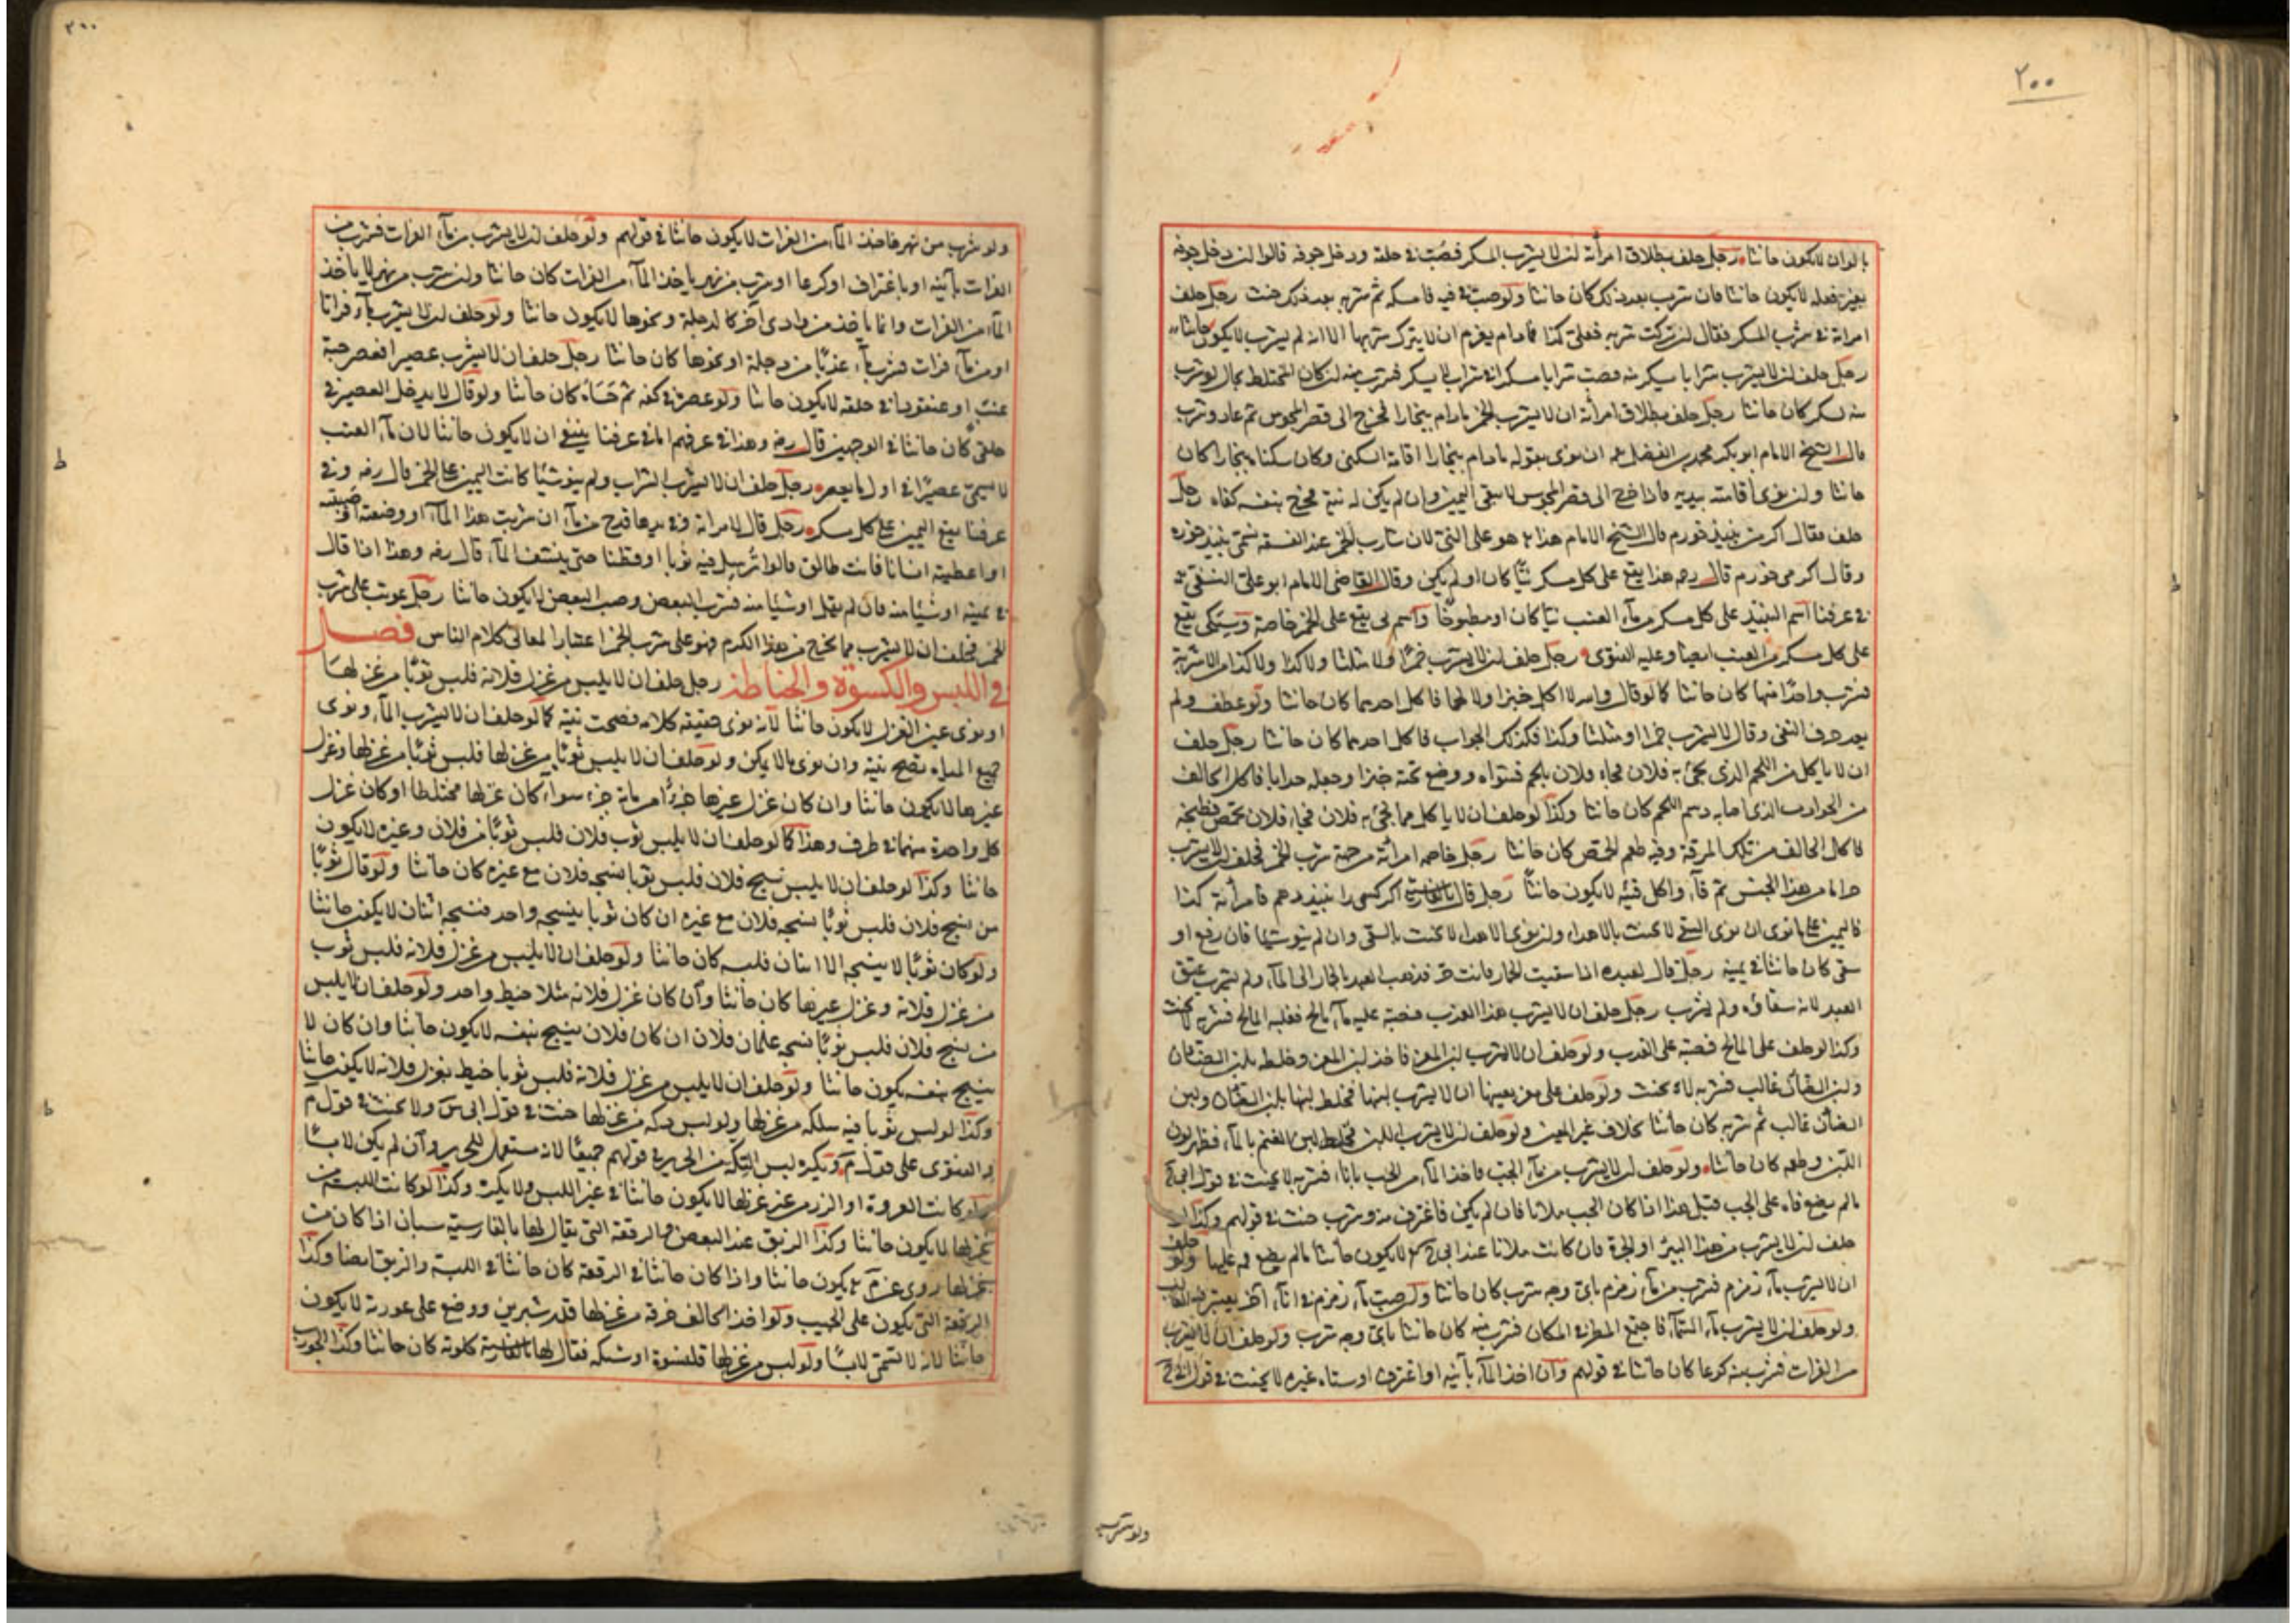 ٢٠٠
بالوان لا يكون حانثا رجل حلف بطلاق امرأته ان لا يشرب المسكر فصبّ في حلقه ودخل جوفه قالوا ان دخل جوفه
بغير فعله لا يكون حانثا فان شرب بعد ذلك كان حانثا ولو صب في فيه فامسكه ثم شربه بعد ذلك حنث رجل حلف
امراته في شرب المسكر فقال ان تركت شربه فعلي كذا فما دام يعزم ان لا يترك شربها الا انه لم يشرب لا يكون حانثا
رجل حلف ان لا يشرب شرابا يسكر منه فصب شرابا مسكرا في شراب لا يسكر فشرب منه ان كان المختلط بحال لو شرب
منه لسكر كان حانثا رجل حلف بطلاق امرأته ان لا يشرب الخمر ما دام ببخارا فخرج الى قصر المجوس ثم عاد وشرب
قال الشيخ الامام ابو بكر محمد بن الفضل ان نوى بقوله ما دام ببخارا اقامة السكنى وكان سكناه ببخارا كان
حانثا وان نوى اقامته ببدنه فاذا خرج الى قصر المجوس لا يبقى اليمين وان لم يكن له نية فخرج بنفسه كفاه رجل
حلف فقال اكر من نبيذ خورم قال الشيخ الامام هذا هو على النئ لان شارب الخمر عند الفسقة تسمى نبيذ خوره
وقال اكر مى خورم قال رحمه هذا يقع على كل مسكر نيّا كان او لم يكن وقال القاضي الامام ابو علي النسفي
في عرفنا اسم النبيذ على كل مسكر من ماء العنب نيا كان او مطبوخا واسم مى يقع على الخمر خاصة وسيكى يقع
على كل مسكر من العنب ايضا وعليه الفتوى رجل حلف ان لا يشرب خمرا ولا مثلثا ولا كذا ولا كذا من الاشربة
فشرب واحدا منها كان حانثا كما لو قال والله لا اكل خبزا ولا لحما فاكل احدهما كان حانثا ولو عطف ولم
يعد حرف النفي وقال لا يشرب خمرا او مثلثا وكذا فكذلك الجواب فاكل احدهما كان حانثا رجل حلف
ان لا ياكل من اللحم الذي يجئ به فلان فجاء فلان بلحم فشواه ووضع تحته خبزا وجعله جوابا فاكل الحالف
من الجواب الذي اصابه دسم اللحم كان حانثا وكذا لو حلف ان لا ياكل مما يجئ به فلان فجاء فلان بحمص فطبخه
فاكل الحالف من تلك المرقة وفيه طعم الحمص كان حانثا رجل خاصم امرأته من جهة شرب الخمر فحلف ان لا يشرب
حراما من هذا الجنس ثم قآء واكل قيئه لا يكون حانثا رجل قال بالفارسية اكر كسى را نبيذ دهم فامرأته كذا
فاليمين على ما نوى ان نوى السقي لا يحنث بالاهداء وان نوى الاهداء لا يحنث بالسقي وان لم ينو شيئا فان رفع او
سقى كان حانثا في يمينه رجل قال لعبده اذا سقيت الحمار فانت حر فذهب العبد بالحمار الى الماء ولم يشرب عتق
العبد لانه سقاه ولم يشرب رجل حلف ان لا يشرب هذا العذب فصبّ عليه ماء مالح فغلبه المالح فشربه لا يحنث
وكذا لو حلف على المالح فصبّ على العذب ولو حلف ان لا يشرب لبن المعز فاخذ لبن المعز وخلط بلبن الضأن
ولبن الضأن غالب فشربه لا يحنث ولو حلف على معز بعينها ان لا يشرب لبنها فخلط لبنها بلبن الضأن ولبن
الضأن غالب ثم شربه كان حانثا بخلاف غير المعين ولو حلف ان لا يشرب اللبن فخلط لبن الغنم بالماء فظهر لون
اللبن وطعمه كان حانثا ولو حلف ان لا يشرب من ماء الجب فاخذ الماء من الجب باناء فشربه لا يحنث في قول ابي ح
ما لم يضع فاه على الجب قيل هذا اذا كان الجب ملانا فان لم يكن فاغترف منه وشرب حنث في قولهم وكذا لو
حلف ان لا يشرب من هذا البئر او الجرة فان كانت ملانا عند ابي ح لا يكون حانثا ما لم يضع فمه عليها ولو حلف
ان لا يشرب ماء زمزم فشرب من ماء زمزم باي وجه شرب كان حانثا ولو صب ماء زمزم في اناء آخر يعتبر فيه الغالب
ولو حلف ان لا يشرب ماء السماء فاجتمع المطر في المكان فشرب منه كان حانثا باي وجه شرب ولو حلف ان لا يشرب
من الفرات فشرب منه كرعا كان حانثا في قولهم وان اخذ الماء بآنية او اغترف او سقاه غيره لا يحنث في قول ابي ح
ولو شرب
٣٠٠
ولو شرب من نهر فاخذ الماء من الفرات لا يكون حانثا في قولهم ولو حلف ان لا يشرب من ماء الفرات فشرب من
الفرات بآنية او باغتراف او كرعا او شرب من نهر ياخذ الماء من الفرات كان حانثا وان شرب من نهر لا ياخذ
الماء من الفرات وانما ياخذ من وادى آخر كالدجلة ونحوها لا يكون حانثا ولو حلف ان لا يشرب ماء فراتا
او من ماء فرات فشرب ماء عذبا من دجلة او نحوها كان حانثا رجل حلف ان لا يشرب عصيرا فعصر حبة
عنب او عنقودا في حلقه لا يكون حانثا ولو عصره في كفه ثم حساه كان حانثا ولو قال لا يدخل العصير في
حلقي كان حانثا في الوجهين قال رضه وهذا في عرفهم اما في عرفنا ينبغي ان لا يكون حانثا لان ماء العنب
لا يسمى عصيرا في اول ما يعصر رجل حلف ان لا يشرب الشراب ولم ينو شيئا كانت اليمين على الخمر قال رضه وفي
عرفنا يقع اليمين على كل مسكر رجل قال لامراته وفي يدها قدح من ماء ان شربت هذا الماء او وضعته او صبته
او اعطيته انسانا فانت طالق قالوا ترسل فيه ثوبا او قطنا حتى ينشف الماء قال رضه وهذا اذا قال
في يمينه او شيئا منه فان لم يقل او شيئا منه فشرب البعض وصب البعض لا يكون حانثا رجل عوتب على شرب
الخمر فحلف ان لا يشرب مما يخرج من هذا الكرم فهو على شرب الخمر اعتبارا لمعاني كلام الناس فصل
في اللبس والكسوة والخياطة رجل حلف ان لا يلبس من غزل فلانة فلبس ثوبا من غزلها
او نوى عين الغزل لا يكون حانثا لانه نوى حقيقة كلامه فصحت نيته كما لو حلف ان لا يشرب الماء ونوى
جميع المياه تصح نيته وان نوى ما لا يكن ولو حلف ان لا يلبس ثوبا من غزلها فلبس ثوبا من غزلها وغزل
غيرها لا يكون حانثا وان كان غزل غيرها جزءا من مائة جزء سواء كان غزلها مختلطا او كان غزل
كل واحدة منهما في طرف وهذا كما لو حلف ان لا يلبس ثوب فلان فلبس ثوبا من فلان وغيره لا يكون
حانثا وكذا لو حلف ان لا يلبس نسج فلان فلبس ثوبا نسجه فلان مع غيره كان حانثا ولو قال ثوبا
من نسج فلان فلبس ثوبا نسجه فلان مع غيره ان كان ثوبا ينسجه واحد فنسجه اثنان لا يكون حانثا
ولو كان ثوبا لا ينسجه الا اثنان فلبسه كان حانثا ولو حلف ان لا يلبس من غزل فلانة فلبس ثوب
من غزل فلانة وغزل غيرها كان حانثا وان كان غزل فلانة مثلا خيط واحد ولو حلف ان لا يلبس
من نسج فلان فلبس ثوبا نسجه غلمان فلان ان كان فلان ينسج بنفسه لا يكون حانثا وان كان لا
ينسج بنفسه يكون حانثا ولو حلف ان لا يلبس من غزل فلانة فلبس ثوبا خيط بغزل فلانة لا يكون حانثا
وكذا لو لبس ثوبا فيه سلكة من غزلها ولو لبس تكة من غزلها حنث في قول ابي س ولا يحنث في قول م
والفتوى على قول م ويكره لبس التكة من الحرير في قولهم جميعا لانه مستعمل للحرير وان لم يكن لابسا
ولو كانت العروة او الزر من غزلها لا يكون حانثا في غير اللبس ولا يكره وكذا لو كانت اللبنة من
غزلها لا يكون حانثا وكذا الزيق عند البعض والرقعة التي يقال لها بالفارسية سبان اذا كانت من
غزلها روى عن م يكون حانثا واذا كان حانثا في الرقعة كان حانثا في اللبنة والزيق ايضا وكذا
الرقعة التي يكون على الجيب ولو اخذ الحالف خرقة من غزلها قدر شبرين ووضع على عورته لا يكون
حانثا لانه لا تسمى لابسا ولو لبس من غزلها قلنسوة او شبكة فقال لها بالفارسية كلوته كان حانثا وكذا الجورب